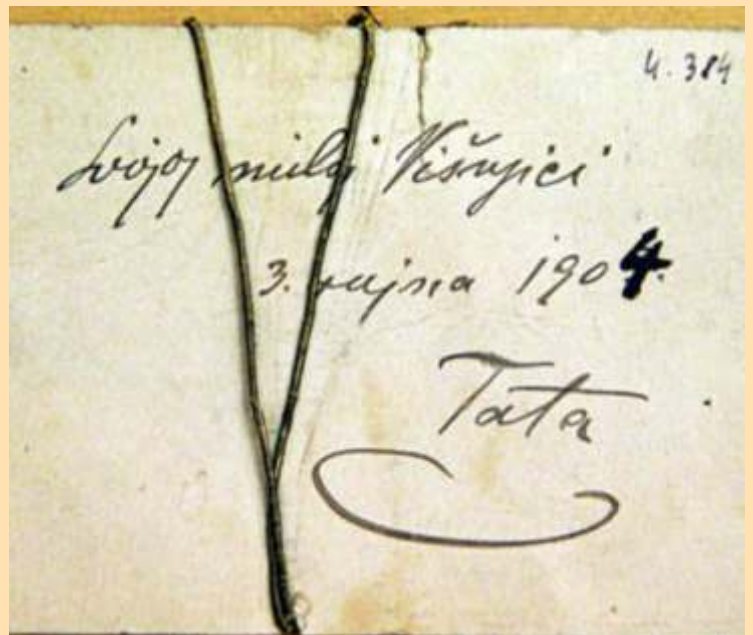 4.384
Svojoj miloj Višnjici
3. rujna 1904.
Tata